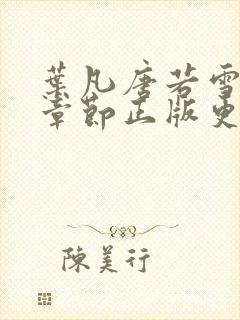 葉凡唐若雪
章節正版更
陳美行